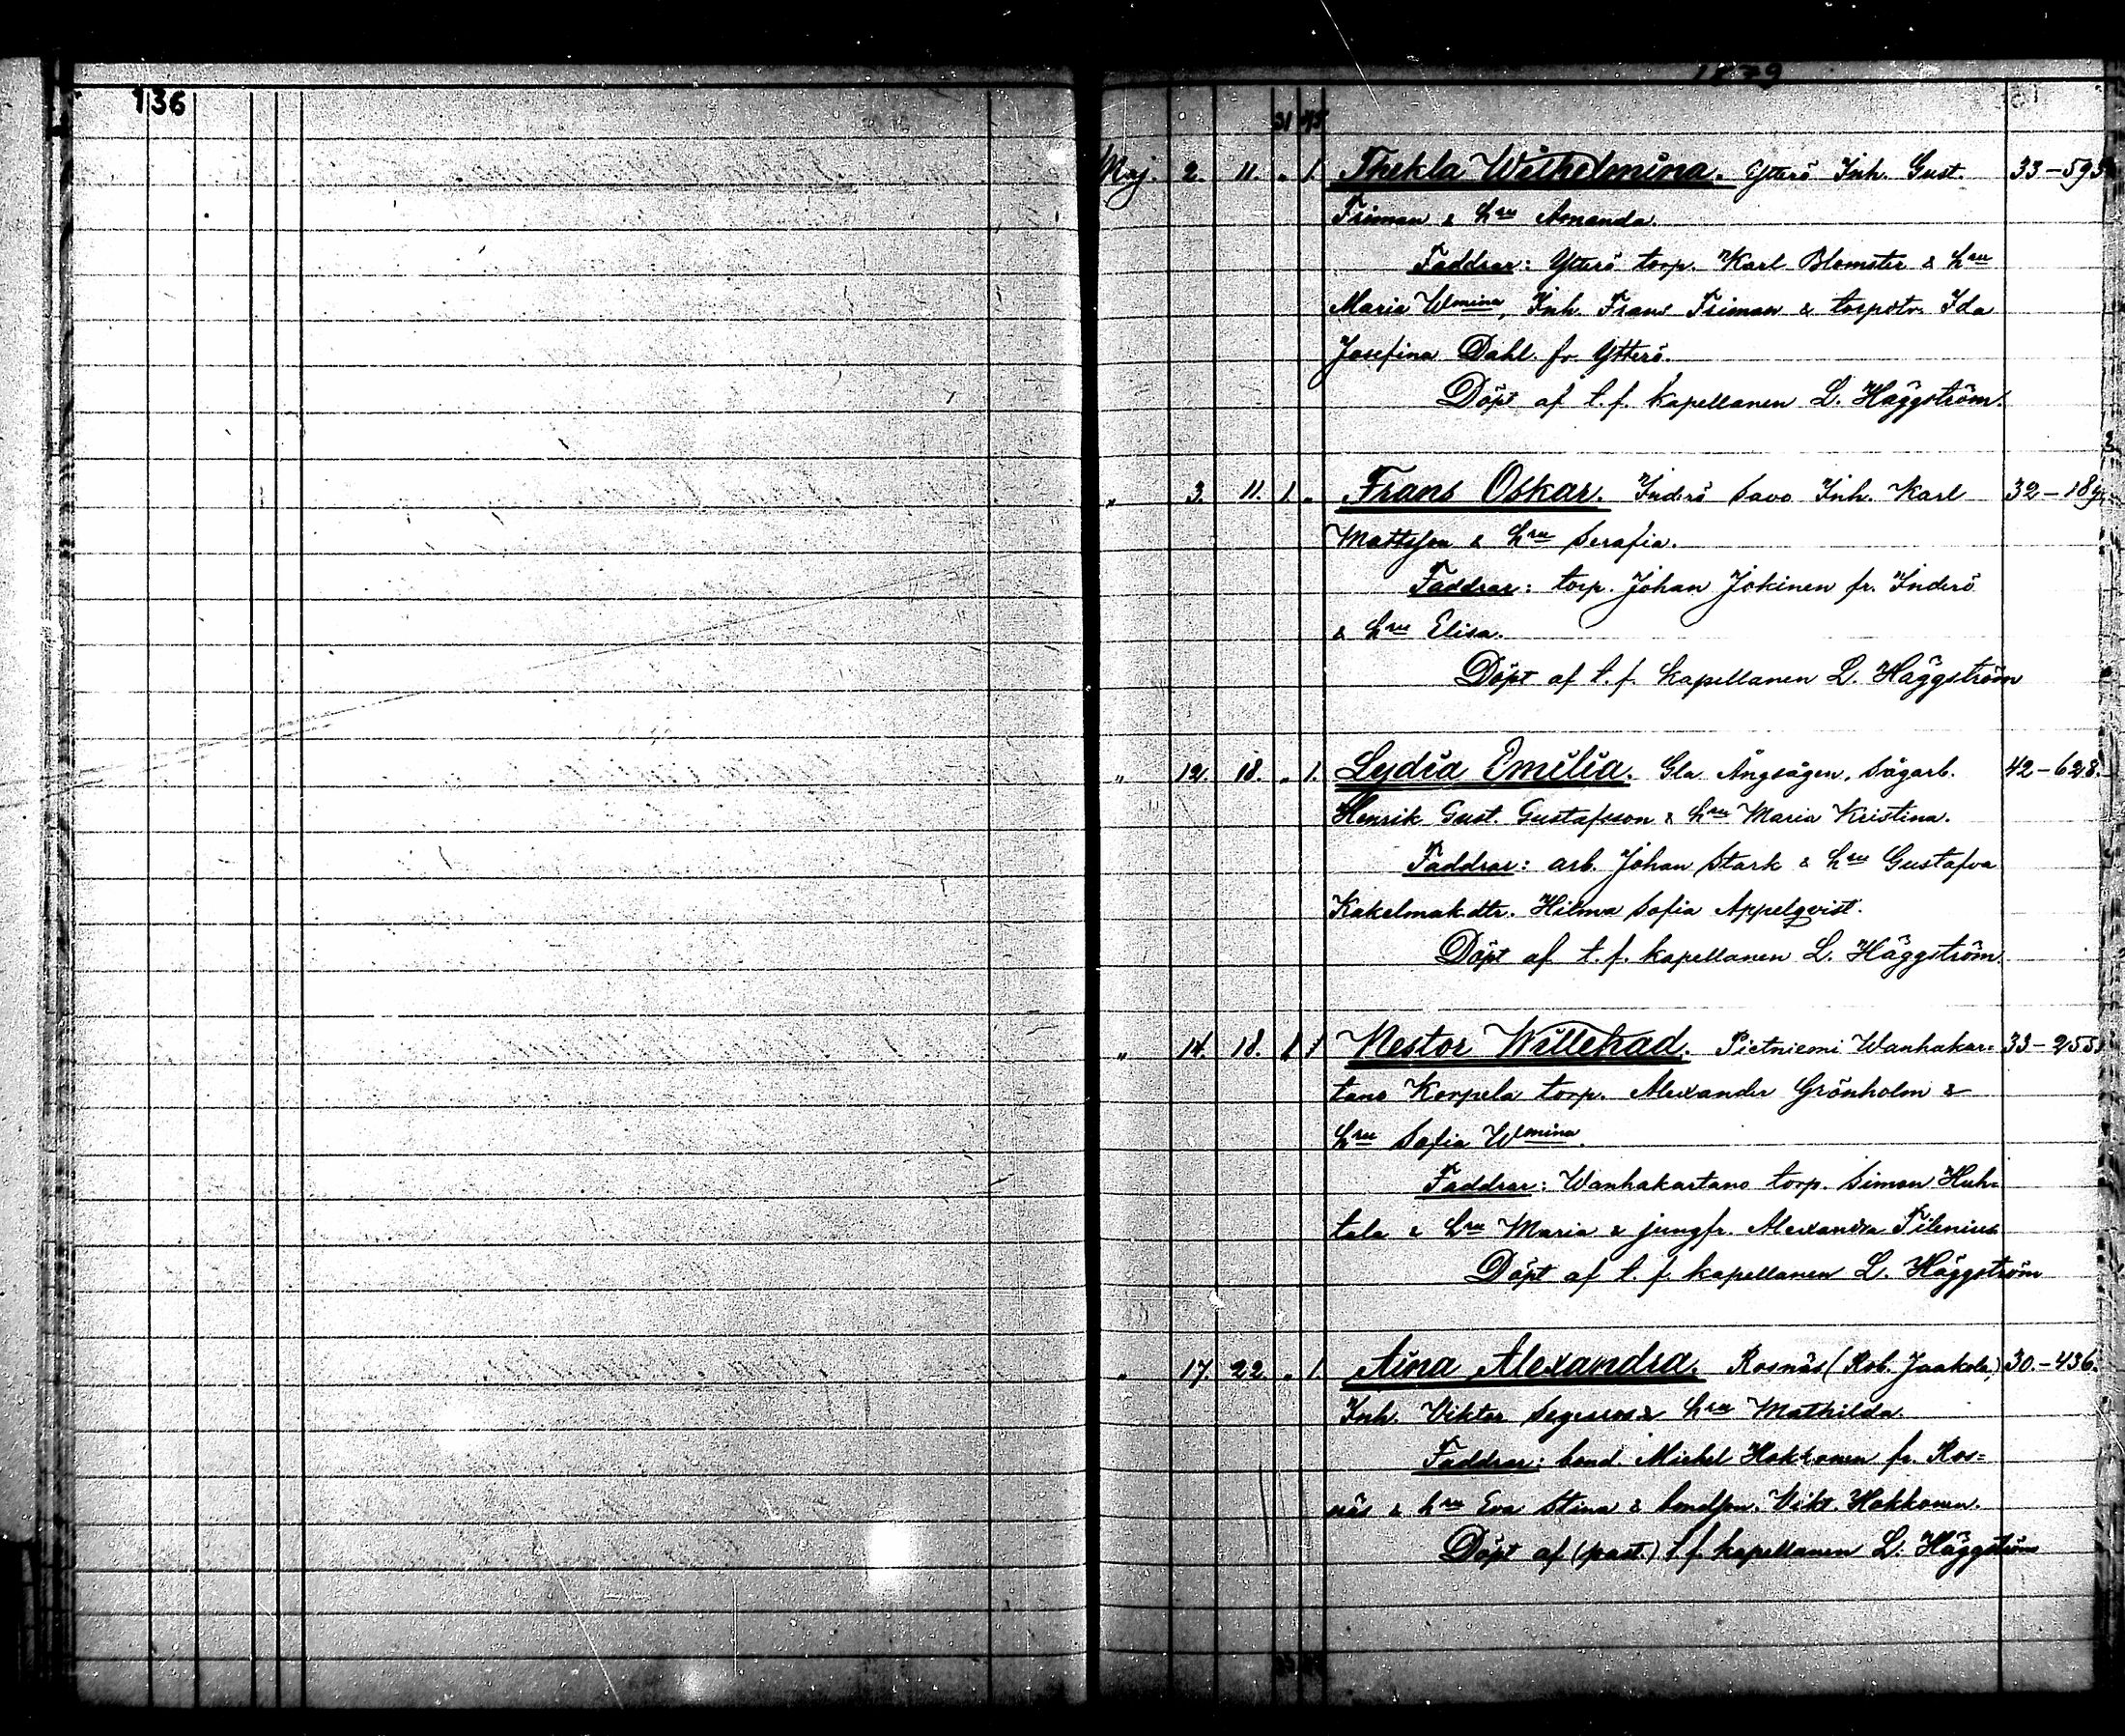 136
1879
31 45
Maj. 2. 11. " 1 Thekla Wilhelmina. Ytterö Inh. Gust. 33–593
Friman & hru Amanda.
Faddrar: Ytterö torp. Karl Blomster & hru
Maria Wmina, Inh. Frans Friman & torpdtr. Ida
Josefina Dahl fr. Ytterö.
Döpt af t. f. kapellanen L. Häggström.
" 3. 11. 1 " Frans Oskar. Inderö Savo Inh. Karl 32–189
Mattsson & hru Serafia.
Faddrar: torp. Johan Jokinen fr. Inderö
& hru Elisa.
Döpt af t. f. kapellanen L. Häggström
" 12. 18. " 1. Lydia Emilia. Gla Ångsågen, Sågarb. 42–628.
Henrik Gust. Gustafsson & hru Maria Kristina.
Faddrar: arb. Johan Stark & hru Gustafva
Kakelmak.dtr. Hilma Sofia Appelqvist.
Döpt af t. f. kapellanen L. Häggström.
" 14. 18. 1 1 Nestor Willehad. Pietniemi Wanhakar= 33–255
tano Korpela torp. Alexander Grönholm &
hru Sofia Wmina.
Faddrar: Wanhakartano torp. Simon Huh=
tala & hru Maria & jungfr. Alexandra Filenius
Döpt af t. f. kapellanen L. Häggström
" 17. 22. " 1 Aina Alexandra. Rosnäs (Rob. Jaakola) 30.–436.
Inh. Viktor Segerros & hru Mathilda.
Faddrar: bond. Mickel Hokkanen fr. Ros=
näs & hru Eva Stina & bondson. Vikt. Hokkonen.
Döpt af (past.) t. f. kapellanen L. Häggström